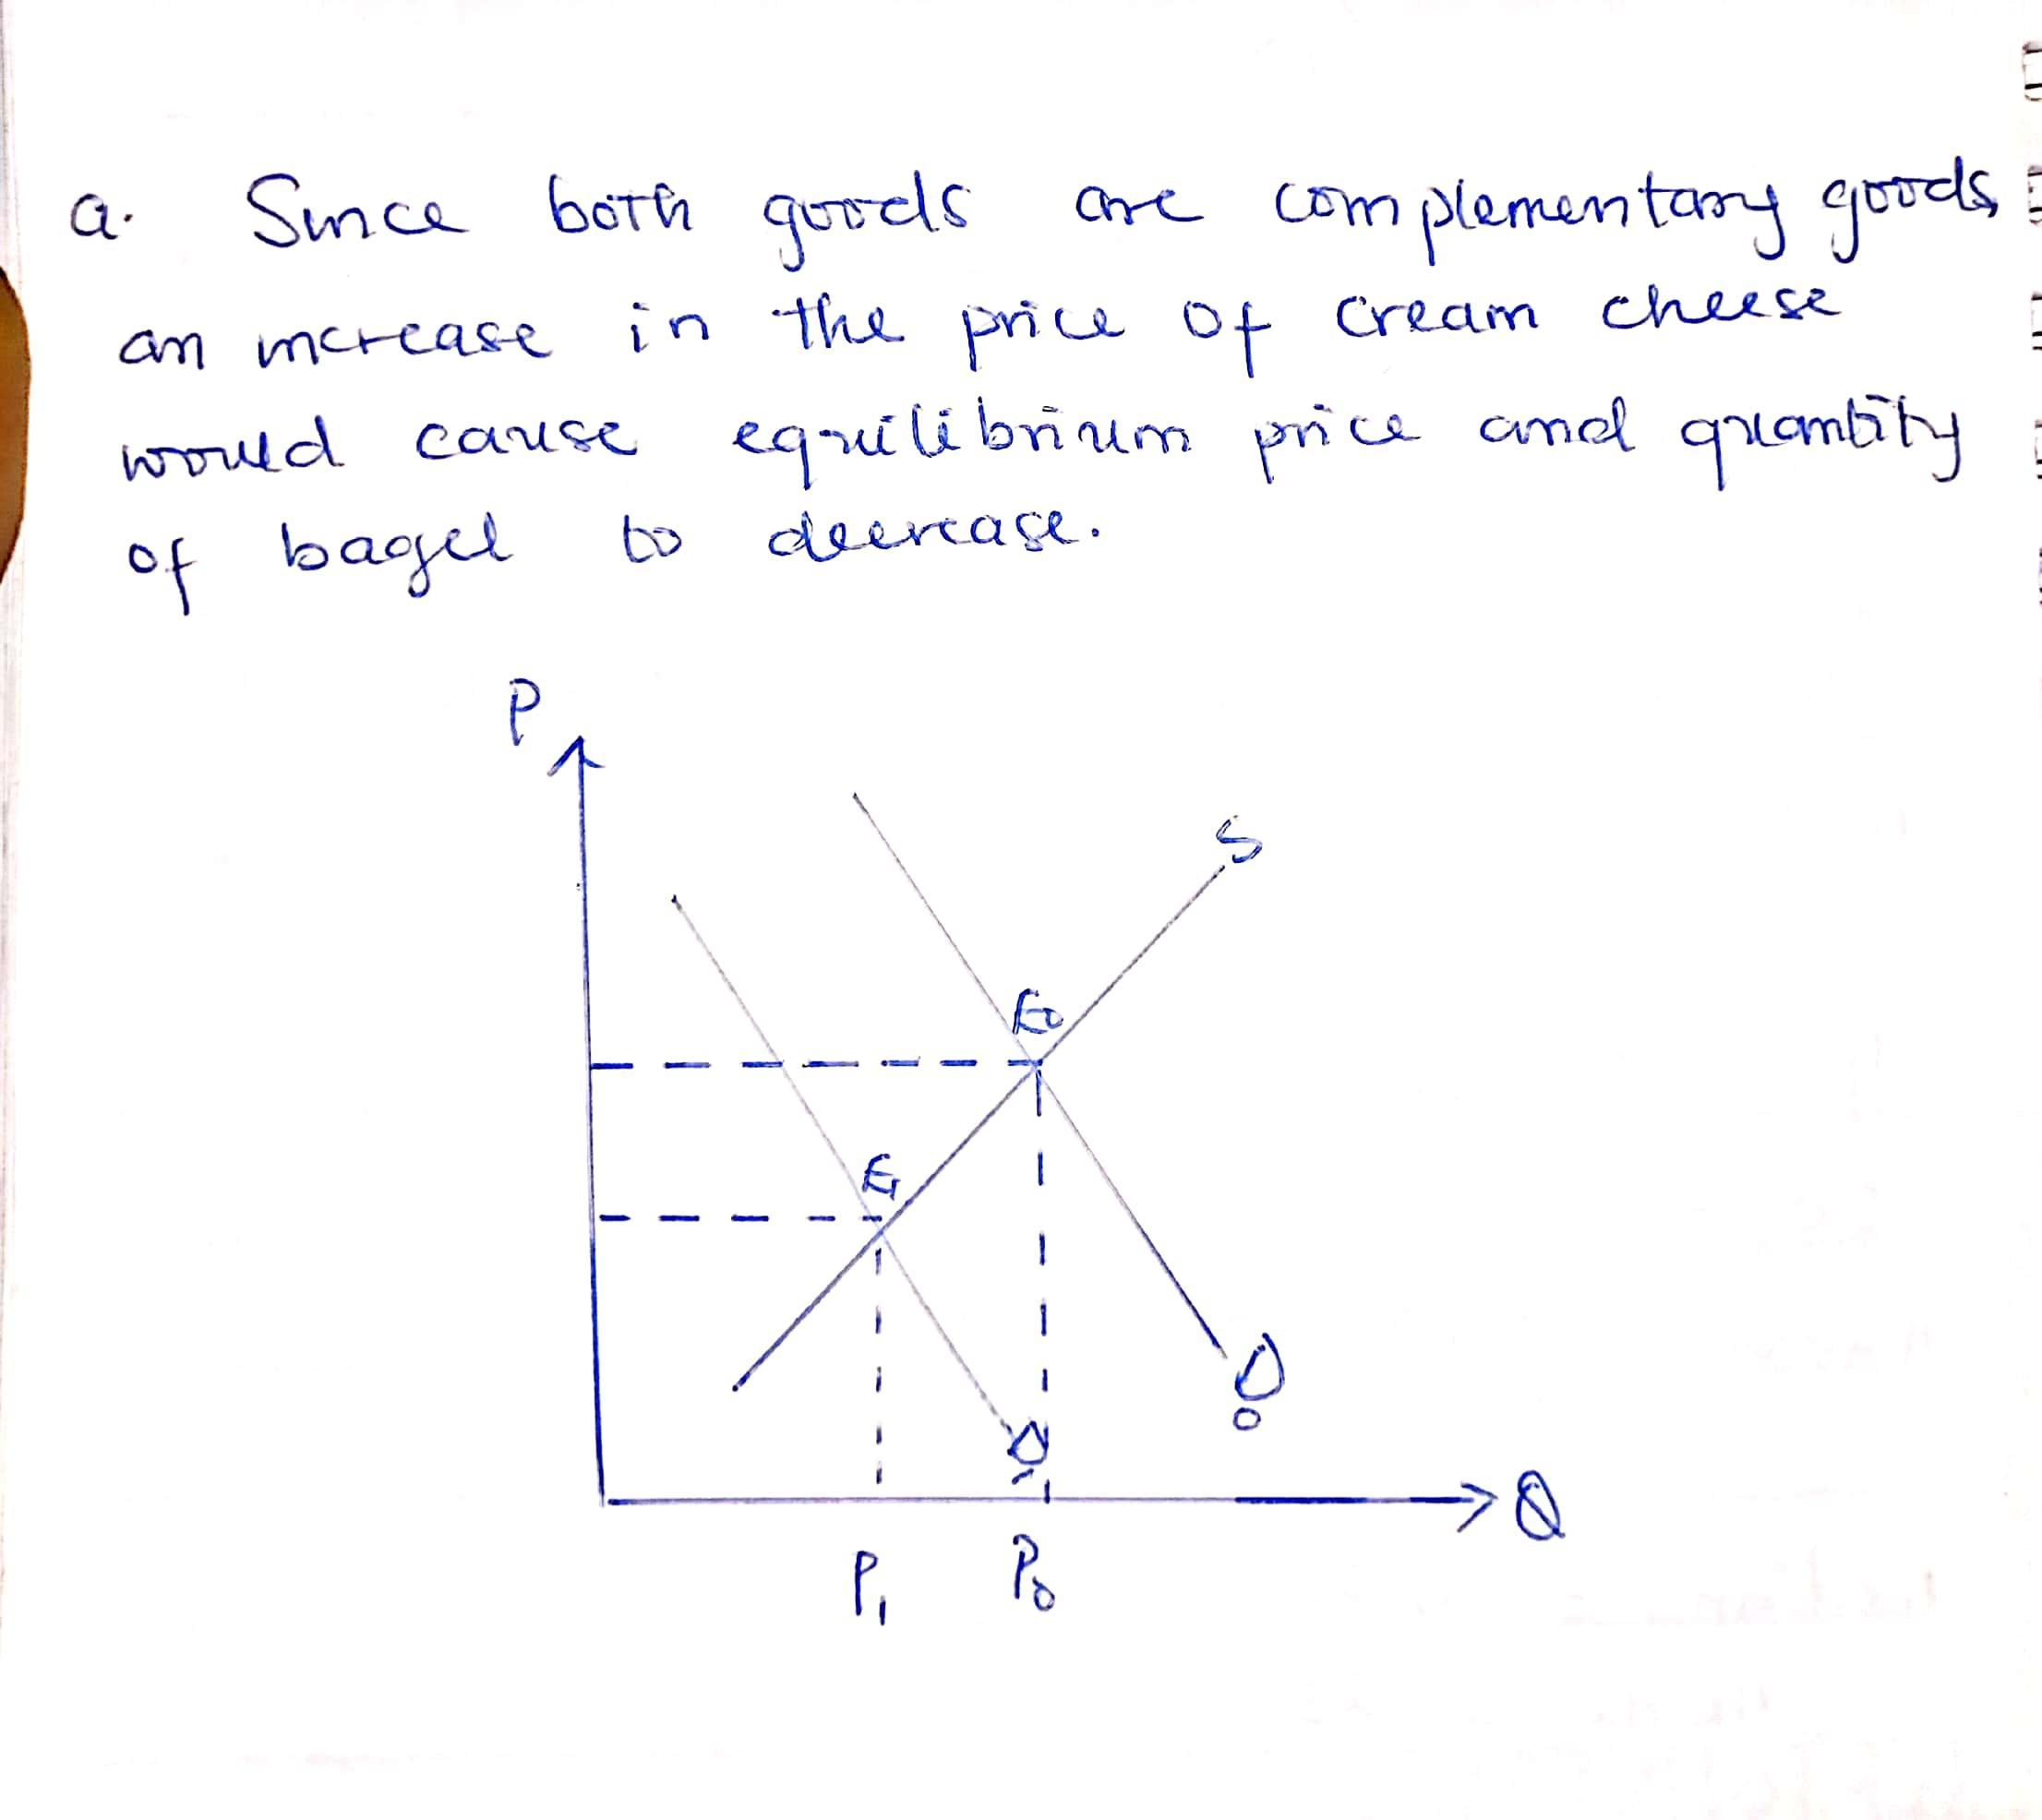 a. Since both goods are complementary goods,
an increase in the price of cream cheese
would cause equilibrium price and quantity
of bagel to decrease.
P
S
E0
E1
D0
D1
Q
P1 P0